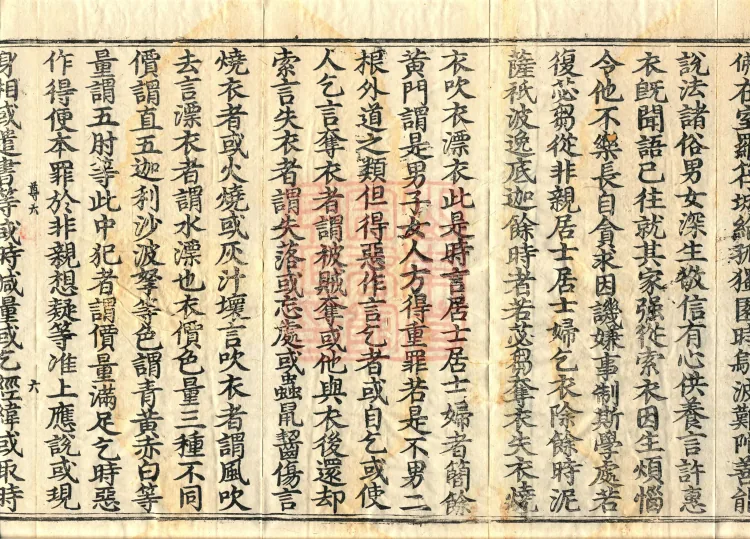 佛在室羅伐城給孤獨園時烏波難陀善能
說法諸俗男女深生敬信有心供養言許惠
衣旣聞語已往就其家强從索衣因生煩惱
令他不樂長自貪求因譏嫌事制斯學處若
復苾芻從非親居士居士婦乞衣除餘時泥
薩祇波逸底迦餘時者若苾芻奪衣失衣燒
衣吹衣漂衣此是時言居士居士婦者簡餘
黃門謂是男子女人方得重罪若是不男二
根外道之類但得惡作言乞者或自乞或使
人乞言奪衣者謂被賊奪或他與衣後還却
索言失衣者謂失落或忘處或蟲鼠齧傷言
燒衣者或火燒或灰汁壞言吹衣者謂風吹
去言漂衣者謂水漂也衣價色量三種不同
價謂直五迦利沙波拏等色謂青黃赤白等
量謂五肘等此中犯者謂價量滿足乞時惡
作得便本罪於非親想疑等准上應說或現
尊六 六
身相或遣書等或時減量或乞經緯或取時